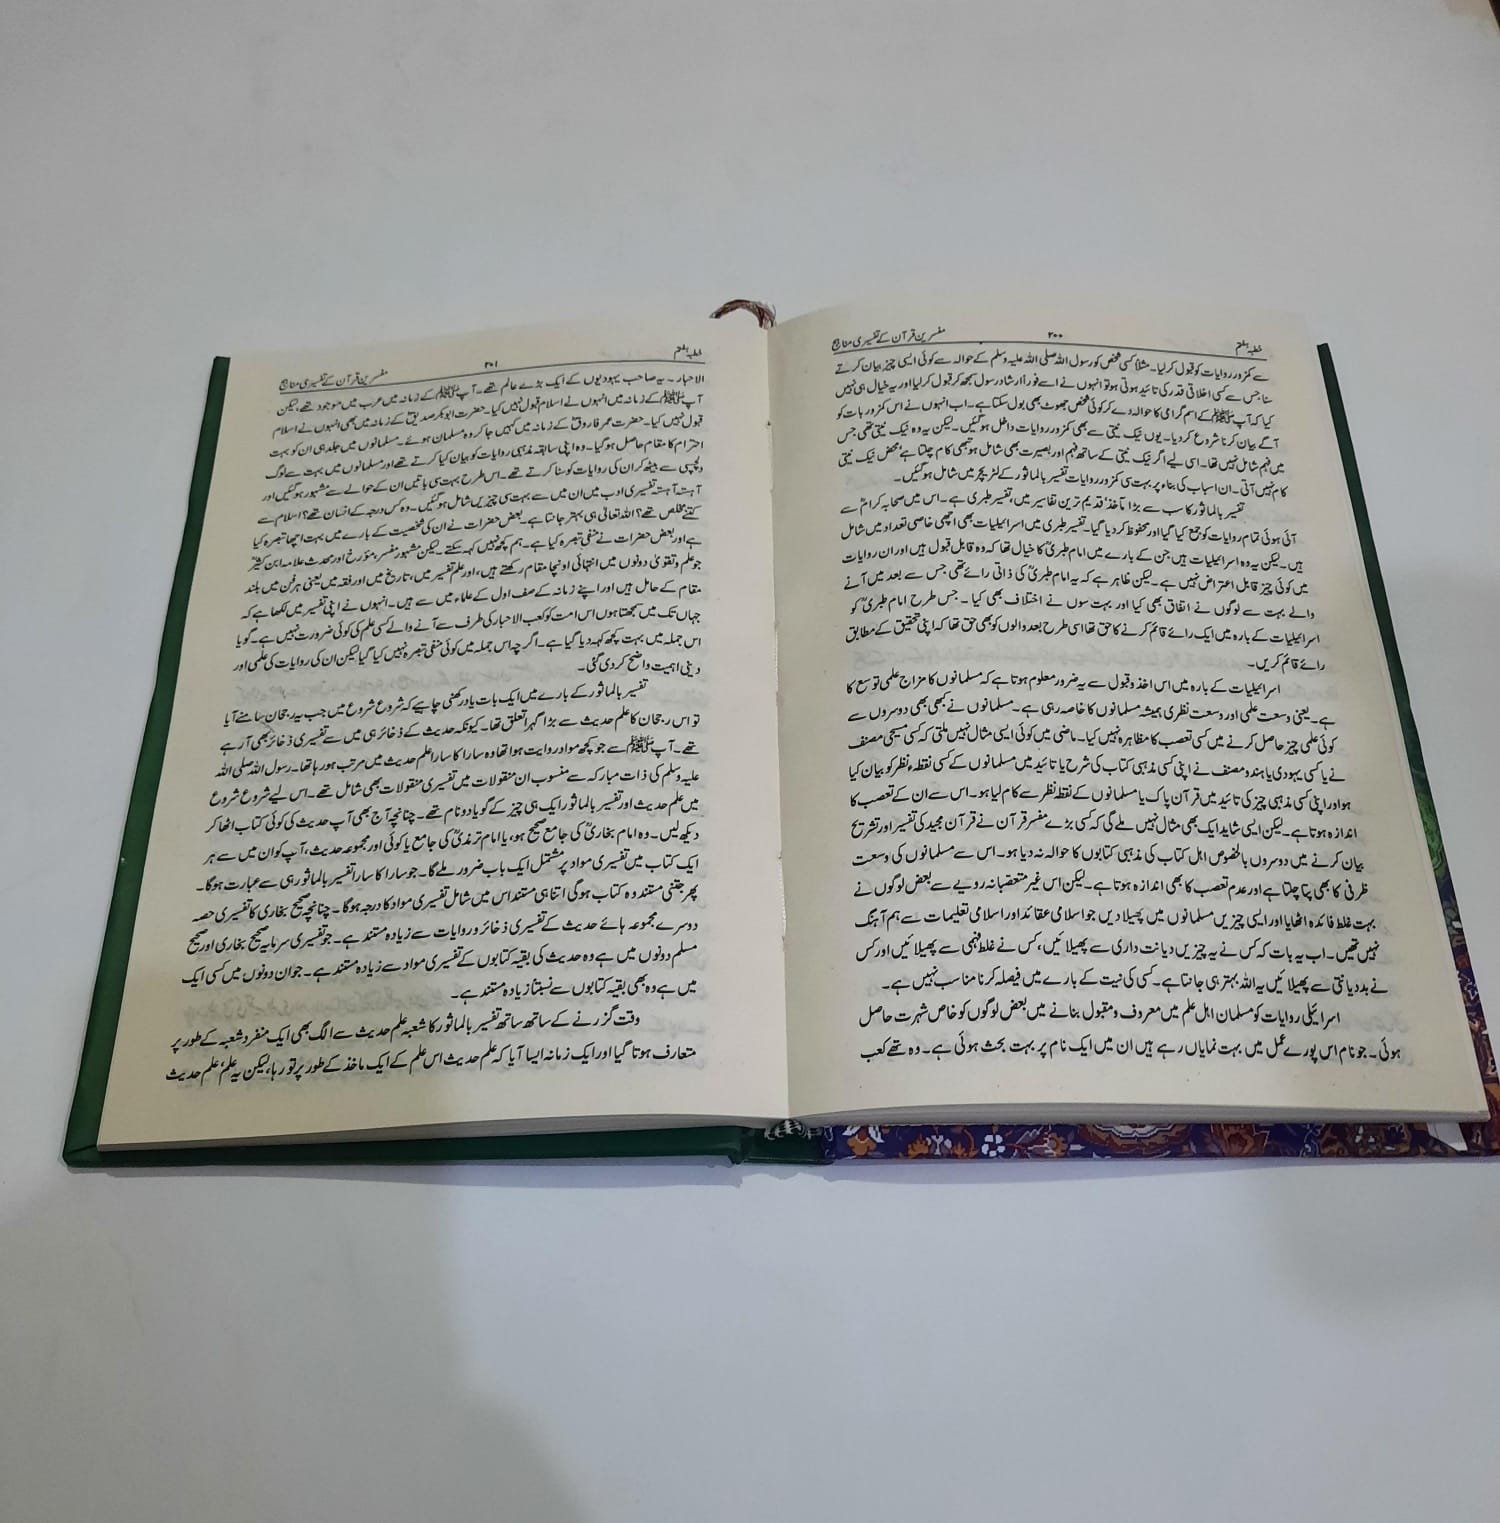 خطبہ ہفتم
۲۰۰
مفسرین قرآن کے تفسیری مناہج
سے کمزور روایات کو قبول کر لیا۔ مثلاً کسی شخص کو رسول اللہ صلی اللہ علیہ وسلم کے حوالہ سے کوئی ایسی چیز بیان کرتے
سنا جس سے کسی اخلاقی قدر کی تائید ہوتی ہو تو انہوں نے اسے فوراً ارشاد رسول سمجھ کر قبول کر لیا اور یہ خیال ہی نہیں
کیا کہ آپ ﷺ کے اسم گرامی کا حوالہ دے کر کوئی شخص جھوٹ بھی بول سکتا ہے۔ اب انہوں نے اس کمزور بات کو
آگے بیان کرنا شروع کر دیا۔ یوں نیک نیتی سے بھی کمزور روایات داخل ہو گئیں۔ لیکن یہ وہ نیک نیتی تھی جس
میں فہم شامل نہیں تھا۔ اسی لیے اگر نیک نیتی کے ساتھ فہم اور بصیرت بھی شامل ہو تبھی کام چلتا ہے، محض نیک نیتی
کام نہیں آتی۔ ان اسباب کی بناء پر بہت سی کمزور روایات تفسیر بالماثور کے لٹریچر میں شامل ہو گئیں۔
تفسیر بالماثور کا سب سے بڑا مآخذ، قدیم ترین تفاسیر میں، تفسیر طبری ہے۔ اس میں صحابہ کرامؓ سے
آئی ہوئی تمام روایات کو جمع کیا گیا اور محفوظ کر دیا گیا۔ تفسیر طبری میں اسرائیلیات بھی اچھی خاصی تعداد میں شامل
ہیں۔ لیکن یہ وہ اسرائیلیات ہیں جن کے بارے میں امام طبریؒ کا خیال تھا کہ وہ قابل قبول ہیں اور ان روایات
میں کوئی چیز قابل اعتراض نہیں ہے۔ لیکن ظاہر ہے کہ یہ امام طبریؒ کی ذاتی رائے تھی جس سے بعد میں آنے
والے بہت سے لوگوں نے اتفاق بھی کیا اور بہت سوں نے اختلاف بھی کیا۔ جس طرح امام طبریؒ کو
اسرائیلیات کے بارہ میں ایک رائے قائم کرنے کا حق تھا اسی طرح بعد والوں کو بھی حق تھا کہ اپنی تحقیق کے مطابق
رائے قائم کریں۔
اسرائیلیات کے بارہ میں اس اخذ و قبول سے یہ ضرور معلوم ہوتا ہے کہ مسلمانوں کا مزاج علمی توسع کا
ہے۔ یعنی وسعت علمی اور وسعت نظری ہمیشہ مسلمانوں کا خاصہ رہی ہے۔ مسلمانوں نے کبھی بھی دوسروں سے
کوئی علمی چیز حاصل کرنے میں کسی تعصب کا مظاہرہ نہیں کیا۔ ماضی میں کوئی ایسی مثال نہیں ملتی کہ کسی مسیحی مصنف
نے یا کسی یہودی یا ہندو مصنف نے اپنی کسی مذہبی کتاب کی شرح یا تائید میں مسلمانوں کے کسی نقطہء نظر کو بیان کیا
ہو اور اپنی کسی مذہبی چیز کی تائید میں قرآن پاک یا مسلمانوں کے نقطہ نظر سے کام لیا ہو۔ اس سے ان کے تعصب کا
اندازہ ہوتا ہے۔ لیکن ایسی شاید ایک بھی مثال نہیں ملے گی کہ کسی بڑے مفسر قرآن نے قرآن مجید کی تفسیر اور تشریح
بیان کرنے میں دوسروں بالخصوص اہل کتاب کی مذہبی کتابوں کا حوالہ نہ دیا ہو۔ اس سے مسلمانوں کی وسعت
ظرفی کا بھی پتا چلتا ہے اور عدم تعصب کا بھی اندازہ ہوتا ہے۔ لیکن اس غیر متعصبانہ رویے سے بعض لوگوں نے
بہت غلط فائدہ اٹھایا اور ایسی چیزیں مسلمانوں میں پھیلا دیں جو اسلامی عقائد اور اسلامی تعلیمات سے ہم آہنگ
نہیں تھیں۔ اب یہ بات کہ کس نے یہ چیزیں دیانت داری سے پھیلائیں، کس نے غلط فہمی سے پھیلائیں اور کس
نے بددیانتی سے پھیلائیں یہ اللہ بہتر ہی جانتا ہے۔ کسی کی نیت کے بارے میں فیصلہ کرنا مناسب نہیں ہے۔
اسرائیلی روایات کو مسلمان اہل علم میں معروف و مقبول بنانے میں بعض لوگوں کو خاص شہرت حاصل
ہوئی۔ جو نام اس پورے عمل میں بہت نمایاں رہے ہیں ان میں ایک نام پر بہت بحث ہوئی ہے۔ وہ تھے کعب
خطبہ ہفتم
۲۰۱
مفسرین قرآن کے تفسیری مناہج
الاحبار۔ یہ صاحب یہودیوں کے ایک بڑے عالم تھے۔ آپ ﷺ کے زمانہ میں عرب میں موجود تھے، لیکن
آپ ﷺ کے زمانہ میں انہوں نے اسلام قبول نہیں کیا۔ حضرت ابوبکر صدیقؓ کے زمانہ میں بھی انہوں نے اسلام
قبول نہیں کیا۔ حضرت عمر فاروقؓ کے زمانہ میں کہیں جا کر وہ مسلمان ہوئے۔ مسلمانوں میں جلد ہی ان کو بہت
احترام کا مقام حاصل ہو گیا۔ وہ اپنی سابقہ مذہبی روایات کو بیان کیا کرتے تھے اور مسلمانوں میں بہت سے لوگ
دلچسپی سے بیٹھ کر ان کی روایات کو سنا کرتے تھے۔ اس طرح بہت سی باتیں ان کے حوالے سے مشہور ہو گئیں اور
آہستہ آہستہ تفسیری ادب میں ان میں سے بہت سی چیزیں شامل ہو گئیں۔ وہ کس درجہ کے انسان تھے؟ اسلام سے
کتنے مخلص تھے؟ اللہ تعالیٰ ہی بہتر جانتا ہے۔ بعض حضرات نے ان کی شخصیت کے بارے میں بہت اچھا تبصرہ کیا
ہے اور بعض حضرات نے منفی تبصرہ کیا ہے۔ ہم کچھ نہیں کہہ سکتے۔ لیکن مشہور مفسر، مؤرخ اور محدث علامہ ابن کثیرؒ
جو علم و تقویٰ دونوں میں انتہائی اونچا مقام رکھتے ہیں، اور علم تفسیر میں، تاریخ میں اور فقہ میں یعنی ہر فن میں بلند
مقام کے حامل ہیں اور اپنے زمانہ کے صف اول کے علماء میں سے ہیں۔ انہوں نے اپنی تفسیر میں لکھا ہے کہ
جہاں تک میں سمجھتا ہوں اس امت کو کعب الاحبار کی طرف سے آنے والے کسی علم کی کوئی ضرورت نہیں ہے۔ گویا
اس جملہ میں بہت کچھ کہہ دیا گیا ہے۔ اگرچہ اس جملہ میں کوئی منفی تبصرہ نہیں کیا گیا لیکن ان کی روایات کی علمی اور
دینی اہمیت واضح کر دی گئی۔
تفسیر بالماثور کے بارے میں ایک بات یاد رکھنی چاہیے کہ شروع شروع میں جب یہ رجحان سامنے آیا
تو اس رجحان کا علم حدیث سے بڑا گہرا تعلق تھا۔ کیونکہ حدیث کے ذخائر ہی میں سے تفسیری ذخائر بھی آ رہے
تھے۔ آپ ﷺ سے جو کچھ مواد روایت ہوا تھا وہ سارا کا سارا علم حدیث میں مرتب ہو رہا تھا۔ رسول اللہ صلی اللہ
علیہ وسلم کی ذات مبارکہ سے منسوب ان منقولات میں تفسیری منقولات بھی شامل تھے۔ اس لیے شروع شروع
میں علم حدیث اور تفسیر بالماثور ایک ہی چیز کے گویا دو نام تھے۔ چنانچہ آج بھی آپ حدیث کی کوئی کتاب اٹھا کر
دیکھ لیں۔ وہ امام بخاریؒ کی جامع صحیح ہو، یا امام ترمذیؒ کی جامع یا کوئی اور مجموعہ حدیث، آپ کو ان میں سے ہر
ایک کتاب میں تفسیری مواد پر مشتمل ایک باب ضرور ملے گا۔ جو سارا کا سارا تفسیر بالماثور ہی سے عبارت ہوگا۔
پھر جتنی مستند وہ کتاب ہوگی اتنا ہی مستند اس میں شامل تفسیری مواد کا درجہ ہوگا۔ چنانچہ صحیح بخاری کا تفسیری حصہ
دوسرے مجموعہ ہائے حدیث کے تفسیری ذخائر و روایات سے زیادہ مستند ہے۔ جو تفسیری سرمایہ صحیح بخاری اور صحیح
مسلم دونوں میں ہے وہ حدیث کی بقیہ کتابوں کے تفسیری مواد سے زیادہ مستند ہے۔ جو ان دونوں میں کسی ایک
میں ہے وہ بھی بقیہ کتابوں سے نسبتاً زیادہ مستند ہے۔
وقت گزرنے کے ساتھ ساتھ تفسیر بالماثور کا شعبہ علم حدیث سے الگ بھی ایک منفرد شعبہ کے طور پر
متعارف ہوتا گیا اور ایک زمانہ ایسا آیا کہ علم حدیث اس علم کے ایک ماخذ کے طور پر تو رہا، لیکن یہ علم، علم حدیث